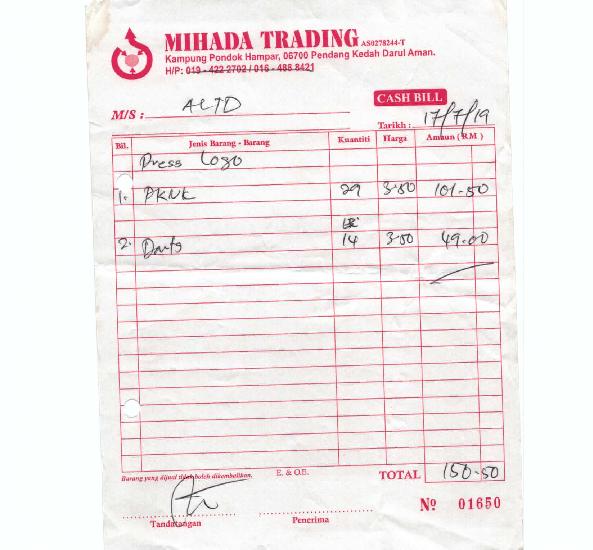 MIHADA TRADING AS0278244-T
Kampung Pondok Hampar, 06700 Pendang Kedah Darul Aman.
H/P: 019 - 422 2702 / 016 - 488 8421
CASH BILL
M/S : ACTD
Tarikh : 17/7/19
Bil. Jenis Barang - Barang Kuantiti Harga Amaun ( RM )
Press Logo
1. PKNK 29 3.50 101-50
2. 14 3.50 49.00
Barang yang dijual tidak boleh dikembalikan. E. & O.E. TOTAL 150-50
Nº 01650
Tandatangan Penerima